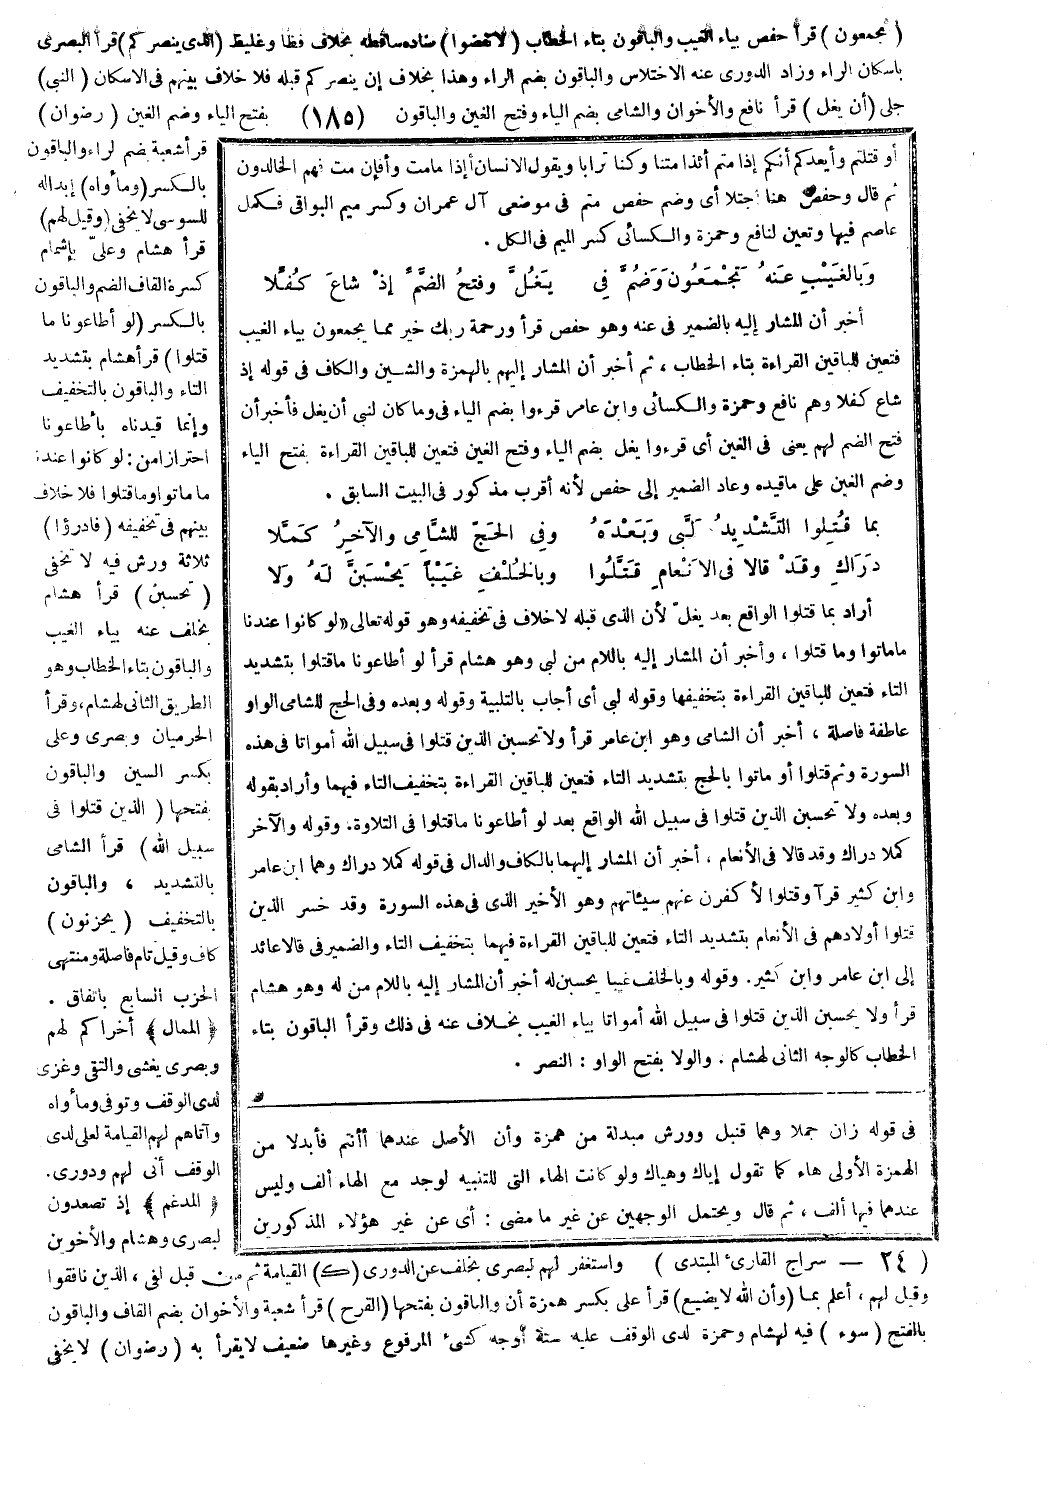 ( تجمعون ) قرأ حفص بياء الغيب والباقون بتاء الخطاب ( لانفضوا ) ضاده ساقطه بخلاف فظا وغليظ ( الذى ينصركم ) قرأ البصرى
باسكان الراء وزاد الدورى عنه الاختلاس والباقون بضم الراء وهذا بخلاف إن ينصركم قبله فلا خلاف بينهم فى الاسكان ( النبى )
جلى ( أن يغل ) قرأ نافع والأخوان والشامى بضم الياء وفتح الغين والباقون (١٨٥) بفتح الياء وضم الغين ( رضوان )
قرأ شعبة بضم الراء والباقون
بالكسر ( ومأواه ) إبداله
للسوسى لا يخفى ( وقيل لهم )
قرأ هشام وعلىّ بإشمام
كسرة القاف الضم والباقون
بالكسر ( لو أطاعونا ما
قتلوا ) قرأ هشام بتشديد
التاء والباقون بالتخفيف
وإنما قيدناه بأطاعونا
احترازا من : لو كانوا عندنا
ما ماتوا وما قتلوا فلا خلاف
بينهم فى تخفيفه ( فادرؤا )
ثلاثة ورش فيه لا تخفى
( تحسبن ) قرأ هشام
بخلف عنه بياء الغيب
والباقون بتاء الخطاب وهو
الطريق الثانى لهشام ، وقرأ
الحرميان وبصرى وعلى
بكسر السين والباقون
بفتحها ( الذين قتلوا فى
سبيل الله ) قرأ الشامى
بالتشديد ، والباقون
بالتخفيف ( يحزنون )
كاف وقيل تام فاصلة ومنتهى
الحزب السابع باتفاق .
﴿ الممال ﴾ أخراكم لهم
وبصرى يغشى والتقى وغزى
لدى الوقف وتوفى ومأواه
وآتاهم لهم القيامة لعلى لدى
الوقف أنى لهم ودورى .
﴿ المدغم ﴾ إذ تصعدون
لبصرى وهشام والأخوين
أو قتلتم وأيعدكم أنكم إذا متم أئذا متنا وكنا ترابا ويقول الانسان أإذا مامت وأفإن مت فهم الخالدون
ثم قال وحفص هنا اجتلا أى وضم حفص متم فى موضعى آل عمران وكسر ميم البواقى فكمل
عاصم فيها وتعين لنافع وحمزة والكسائى كسر الميم فى الكل .
وَبالغَيْبِ عَنهُ تَجْمَعُونَ وَضُمَّ فِي يَغُلَّ وفتحُ الضَّمَّ إذْ شاعَ كُفِّلَا
أخبر أن المشار إليه بالضمير فى عنه وهو حفص قرأ ورحمة ربك خير مما يجمعون بياء الغيب
فتعين للباقين القراءة بتاء الخطاب ، ثم أخبر أن المشار إليهم بالهمزة والشين والكاف فى قوله إذ
شاع كفلا وهم نافع وحمزة والكسائى وابن عامر قرءوا بضم الياء فى وما كان لنبى أن يغل فأخبر أن
فتح الضم لهم يعنى فى الغين أى قرءوا يغل بضم الياء وفتح الغين فتعين للباقين القراءة بفتح الياء
وضم الغين على ماقيده وعاد الضمير إلى حفص لأنه أقرب مذكور فى البيت السابق .
بما قُتِلوا التَّشْدِيدُ لَبَّى وَبَعْدَهُ وفِي الحَجِّ للشَّامِى والآخِرُ كَمَّلَا
دَرَاكِ وقَدْ قالا فى الانْعامِ قَتَّلُوا وبالخُلْفِ غَيْباً يَحْسَبَنَّ لَهُ وَلا
أراد بما قتلوا الواقع بعد يغلّ لأن الذى قبله لا خلاف فى تخفيفه وهو قوله تعالى «لو كانوا عندنا
ماماتوا وما قتلوا ، وأخبر أن المشار إليه باللام من لبى وهو هشام قرأ لو أطاعونا ماقتلوا بتشديد
التاء فتعين للباقين القراءة بتخفيفها وقوله لبى أى أجاب بالتلبية وقوله وبعده وفى الحج للشامى الواو
عاطفة فاصلة ، أخبر أن الشامى وهو ابن عامر قرأ ولا تحسبن الذين قتلوا فى سبيل الله أمواتا فى هذه
السورة وثم قتلوا أو ماتوا بالحج بتشديد التاء فتعين للباقين القراءة بتخفيف التاء فيهما وأراد بقوله
وبعده ولا تحسبن الذين قتلوا فى سبيل الله الواقع بعد لو أطاعونا ماقتلوا فى التلاوة. وقوله والآخر
كملا دراك وقد قالا فى الأنعام ، أخبر أن المشار إليهما بالكاف والدال فى قوله كملا دراك وهما ابن عامر
وابن كثير قرآ وقتلوا لأ كفرن عنهم سيئاتهم وهو الأخير الذى فى هذه السورة وقد خسر الذين
قتلوا أولادهم فى الأنعام بتشديد التاء فتعين للباقين القراءة فيهما بتخفيف التاء والضمير فى قالا عائد
إلى ابن عامر وابن كثير. وقوله وبالخلف غيبا يحسبن له أخبر أن المشار إليه باللام من له وهو هشام
قرأ ولا يحسبن الذين قتلوا فى سبيل الله أمواتا بياء الغيب بخلاف عنه فى ذلك وقرأ الباقون بتاء
الخطاب كالوجه الثانى لهشام . والولا بفتح الواو : النصر .
فى قوله زان جملا وهما قنبل وورش مبدلة من همزة وأن الأصل عندهما أأنتم فأبدلا من
الهمزة الأولى هاء كما تقول إياك وهياك ولو كانت الهاء التى للتنبيه لوجد مع الهاء ألف وليس
عندهما فيها ألف ، ثم قال ويحتمل الوجهين عن غير ما مضى : أى عن غير هؤلاء المذكورين
( ٢٤ — سراج القارىء المبتدى ) واستغفر لهم لبصرى بخلف عن الدورى (ك) القيامة ثم من قبل لفى ، الذين نافقوا
وقيل لهم ، أعلم بما ( وأن الله لا يضيع ) قرأ على بكسر همزة أن والباقون بفتحها ( القرح ) قرأ شعبة والأخوان بضم القاف والباقون
بالفتح ( سوء ) فيه لهشام وحمزة لدى الوقف عليه ستة أوجه كشىء المرفوع وغيرها ضعيف لا يقرأ به ( رضوان ) لا يخفى